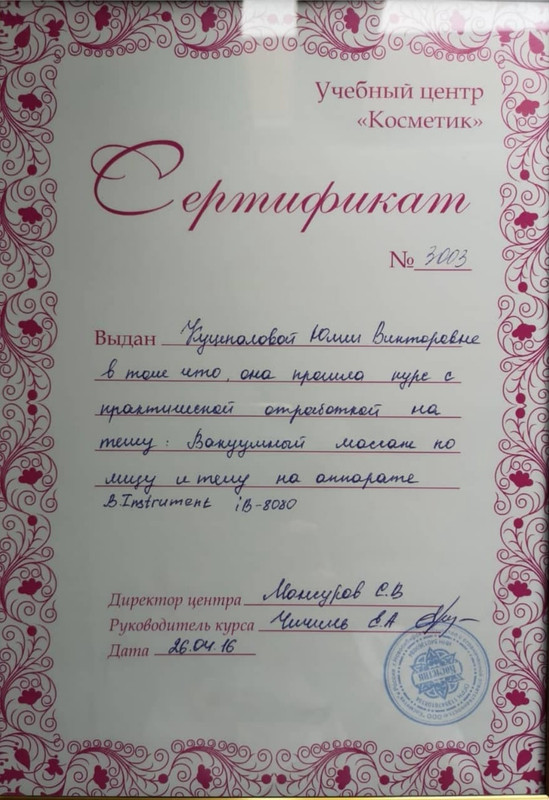 Учебный центр
«Косметик»
Сертификат
№ 3003
Выдан Кушполовой Юлии Викторовне
в том что, она прошла курс с
практической отработкой на
тему: Вакуумный массаж по
лицу и телу на аппарате
B.Instrument iB-8080
Директор центра Мансуров С.В
Руководитель курса Чичиль Е.А
Дата 26.04.16